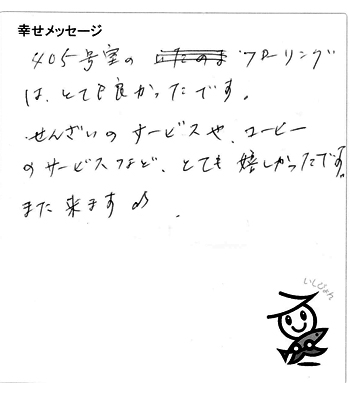 幸せメッセージ
405号室の フローリング
は、とても良かったです。
せんざいのサービスや、コーヒー
のサービスなど、とても嬉しかったです。
また来ます♪